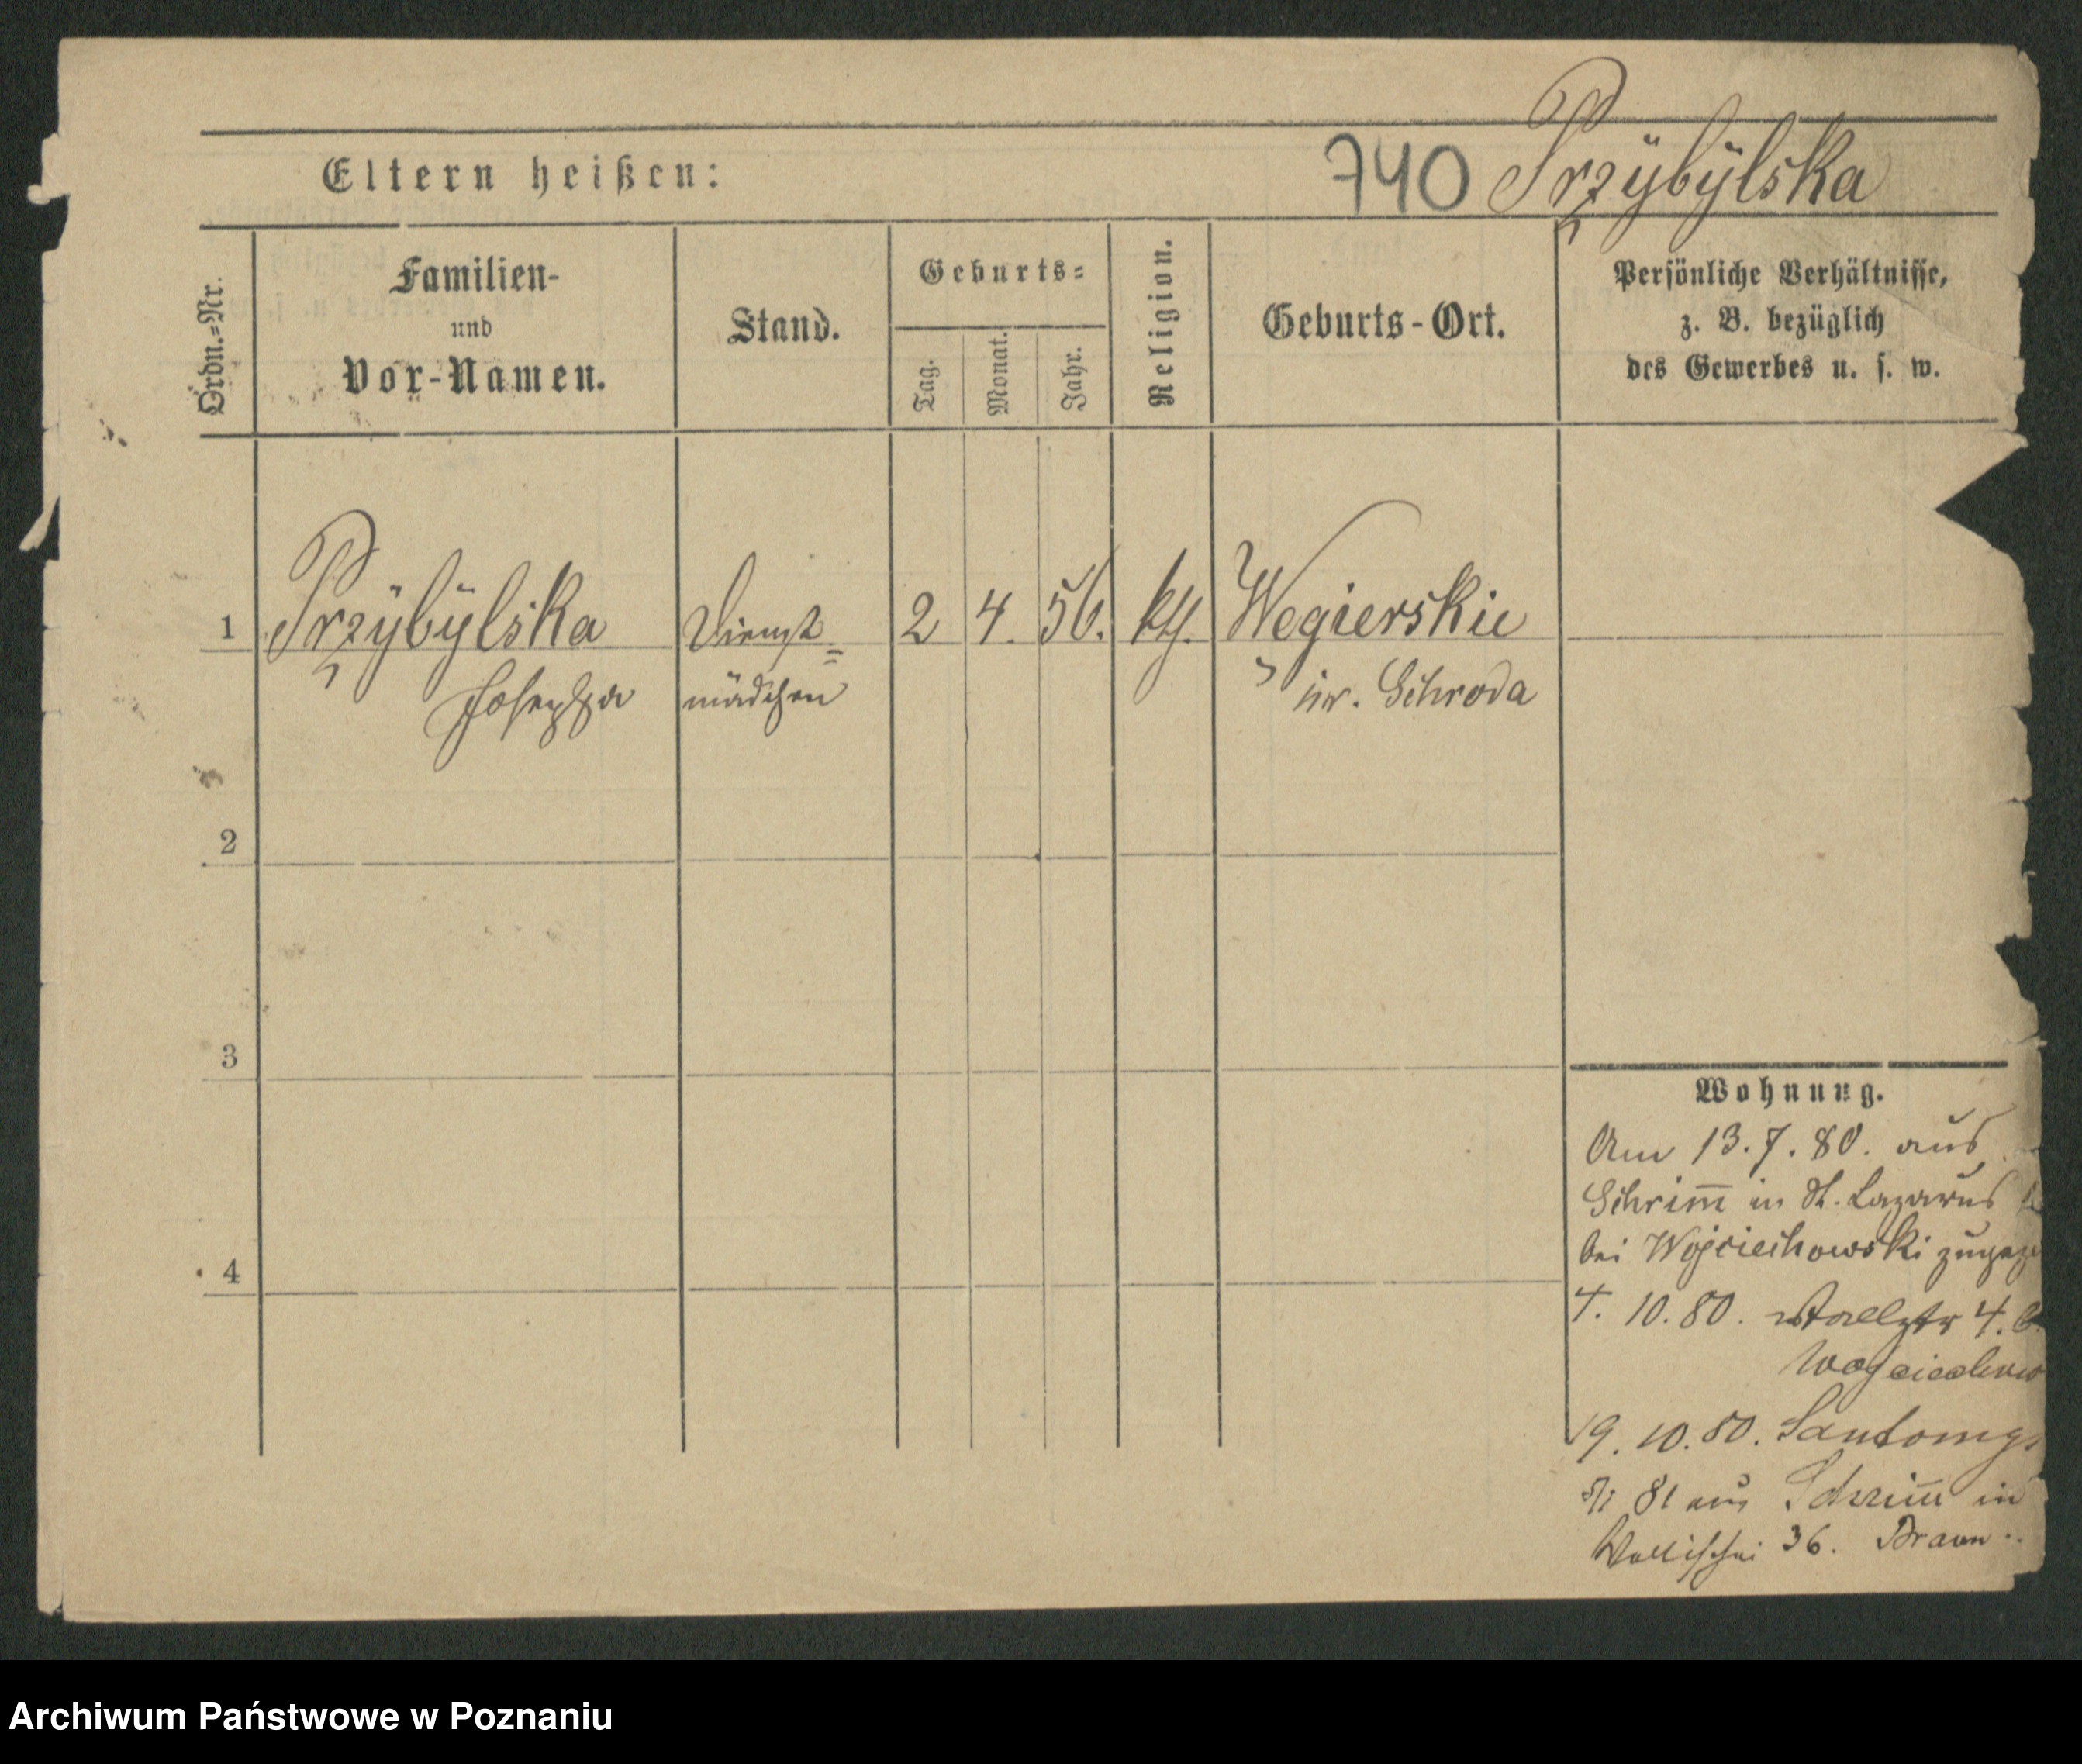 Eltern heißen:
740 Przÿbÿlska
Ordn.-Nr.
Familien-
und
Vor-Namen.
Stand.
Geburts-
Tag.
Monat.
Jahr.
Religion.
Geburts-Ort.
Persönliche Verhältnisse,
z. B. bezüglich
des Gewerbes u. s. w.
1 Przÿbÿlska Dienst= 2 4. 56. kth. Wegierskie
Josepha mädchen kr. Schroda
2
3
4
Wohnung.
Am 13.7.80. aus
Schrim̅ in St. Lazarus
bei Wojciechowski zugez
4. 10.80. Wallstr 4. b
Wojciechow
19. 10. 80. Santomys
81 aus Schrim̅ in
Wallischei 36. Braun
Archiwum Państwowe w Poznaniu